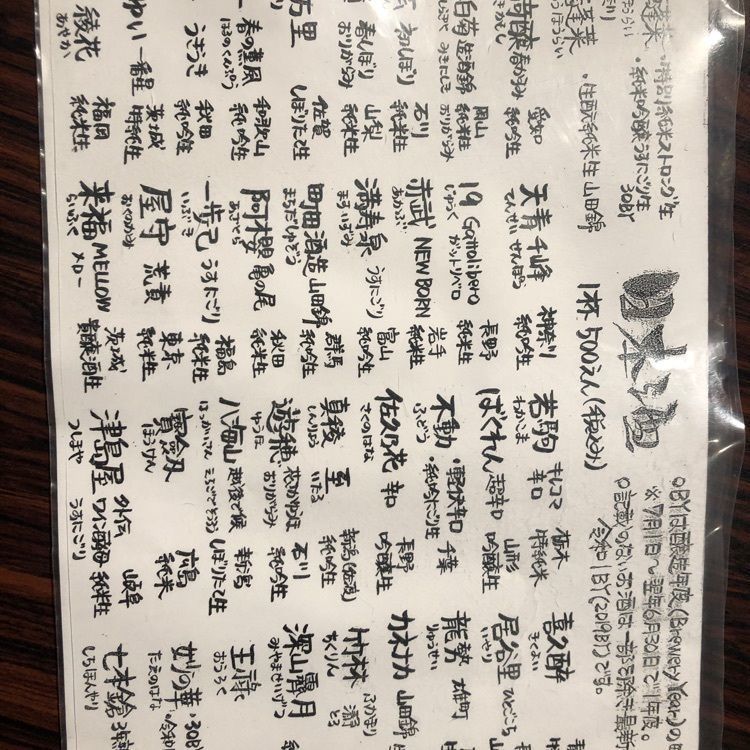 日本酒
1杯 500えん(税込み)
○BYは醸造年度(Brewery Year)の
※7月1日〜翌年6月30日で1年度。
○記載のないお酒は一部を除き最新
令和1BY(2019BY)です。
蓬莱
・特別純米ストロング生
・純米吟醸うすにごり生
30BY
蓬莱
・生酛純米生 山田錦
春かすみ 愛知
純吟生
白菊 岡山
純米生
初しぼり 石川
純米生
春しぼり 山梨
おりがらみ 純吟生
万里 佐賀
しぼりたて生
春の薫風 和歌山
はるのくんぷう 純吟生
うきうき 秋田
純吟生
ゆい 一番星 茨城
特純生
綾花 福岡
あやか 純米生
天青 千峰 神奈川
てんせい せんぽう 純吟生
19 Gattolibero 長野
じゅうく ガットリベロ 純米生
赤武 NEWBORN 岩手
あかぶ 純米生
満寿泉 うすにごり 富山
ますいずみ 純米生
町田酒造 山田錦 群馬
まちだしゅぞう 純吟生
阿櫻 亀の尾 秋田
あざくら 純米生
一歩己 うすにごり 福島
いぶき 純米生
屋守 荒責 東京
おくのかみ 純米生
来福 MELLOW 茨城
らいふく メロー 貴醸酒生
若駒 キレコマ辛口 栃木
わかこま 特純米
ばくれん 超辛口 山形
吟醸生
不動 ・超辛口 千葉
ふどう ・純吟にごり生
佐久乃花 辛口 長野
さくのはな 吟醸生
真稜 至 新潟(佐渡)
しんりょう いたる 純吟生
遊穂 花さかゆほ 石川
ゆうほ おりがらみ 純吟生
八海山 越後で候 新潟
はっかいさん えちごでそうろう しぼりたて生
寶剣 広島
ほうけん 純米
津島屋 外伝 岐阜
つしまや うすにごり ワイン酵母 純米生
喜久酔
きくよい
居谷里 ひとごこち
いやり
龍勢 雄町
りゅうせい
カネナカ 山田錦
竹林 瀞
ちくりん とろ
深山霽月
みやませいげつ
王祿
おうろく
妙の華 ・30BY
たえのはな
七本鎗
しちほんやり